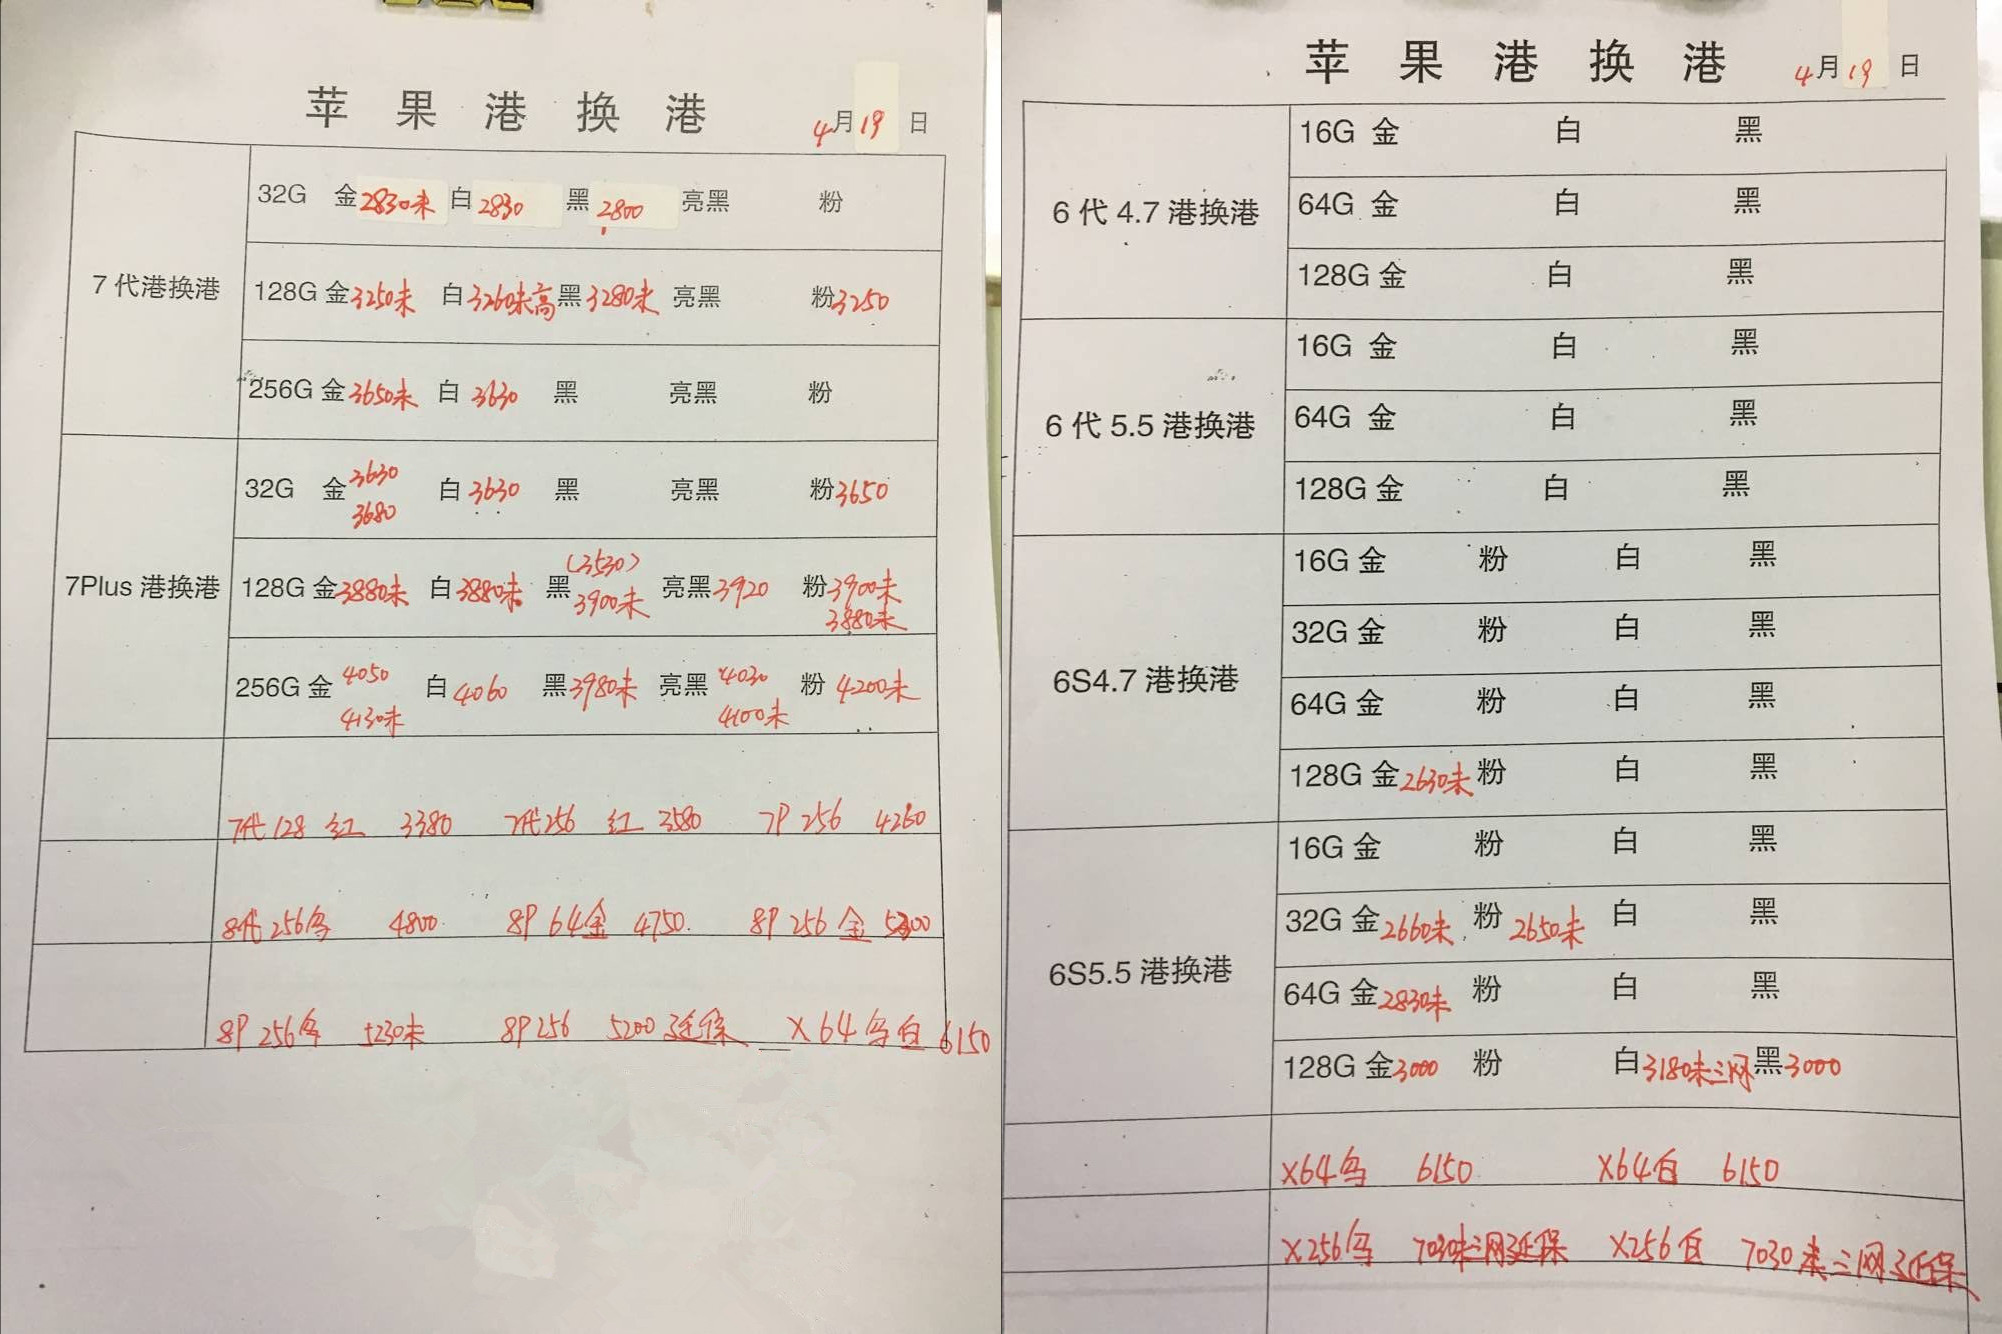 苹果港换港 4月19日
7代港换港
32G 金2830未 白2830 黑2800 亮黑 粉
128G 金3250未 白3260未高 黑3280未 亮黑 粉3250
256G 金3650未 白3630 黑 亮黑 粉
7Plus港换港
32G 金3630 白3630 黑 亮黑 粉3650
3680
(3530)
128G 金3880未 白3880未 黑3900未 亮黑3920 粉3900未
3880未
256G 金4050 白4060 黑3980未 亮黑4030 粉4200未
4130未 4100未
7代128 红 3380 7代256 红 3580 7P 256 4260
8代256 4800 8P 64金 4750 8P 256 金
8P 256 5230未 8P256 5200延保 X64 白 6150
苹果港换港 4月19日
6代4.7港换港
16G 金 白 黑
64G 金 白 黑
128G 金 白 黑
6代5.5港换港
16G 金 白 黑
64G 金 白 黑
128G 金 白 黑
6S4.7港换港
16G 金 粉 白 黑
32G 金 粉 白 黑
64G 金 粉 白 黑
128G 金2630未 粉 白 黑
6S5.5港换港
16G 金 粉 白 黑
32G 金2660未 粉2650未 白 黑
64G 金2830未 粉 白 黑
128G 金3000 粉 白3180未三网 黑3000
X64 6150 X64白 6150
X256 7030未三网延保 X256白 7030未三网延保